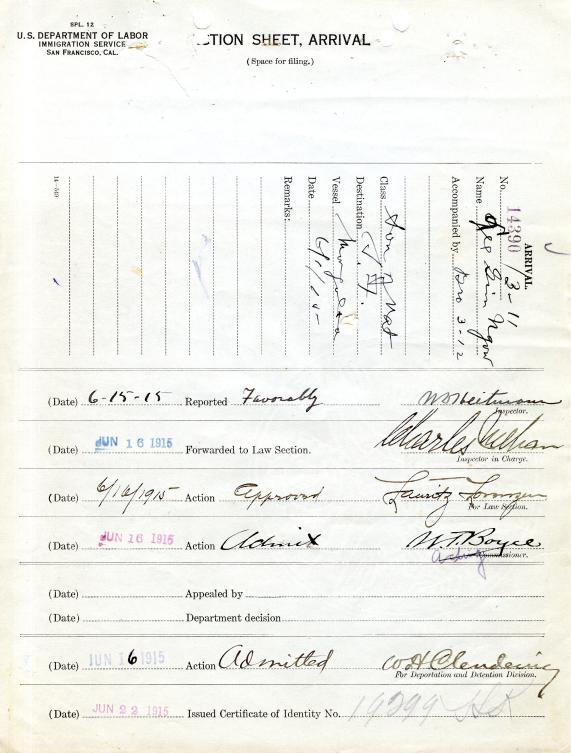 SPL. 12
U.S. DEPARTMENT OF LABOR
IMMIGRATION SERVICE
SAN FRANCISCO, CAL.
CTION SHEET, ARRIVAL
(Space for filing.)
ARRIVAL.
No. 14390 / 3-11
Name Gee Gin Ngow
Accompanied by Bro 3-12
Class Son of Nat
Destination S.F.
Vessel Mongolia
Date 6/1/15-
Remarks:
14-549
(Date) 6-15-15 Reported Favorably
Inspector.
(Date) JUN 16 1915 Forwarded to Law Section.
Charles
Inspector in Charge.
(Date) 6/16/1915 Action Approved Lauritz Lorenzen
For Law Section.
(Date) JUN 16 1915 Action Admit W.F. Boyce
Acting Commissioner.
(Date) Appealed by
(Date) Department decision
(Date) JUN 16 1915 Action Admitted W H Clendening
For Deportation and Detention Division.
(Date) JUN 22 1915 Issued Certificate of Identity No. 19299